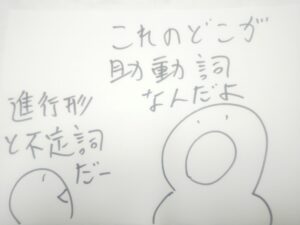 これのどこが
助動詞
なんだよ
進行形
と不定詞
だー